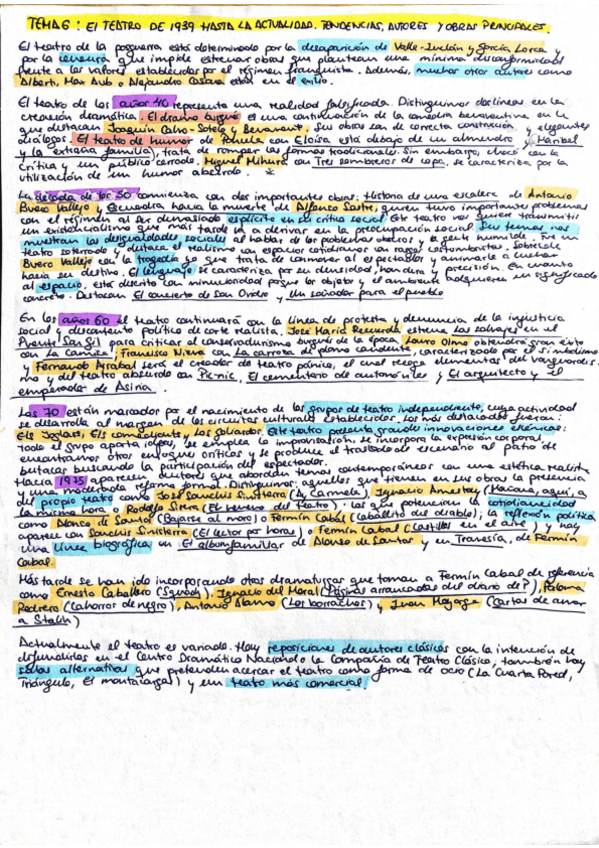 TEMA 6: El TEATRO DE 1939 HASTA LA ACTUALIDAD. TENDENCIAS, AUTORES Y OBRAS PRINCIPALES.
El teatro de la posguerra está determinado por la desaparición de Valle-Inclán y García Lorca y
por la censura que impide estrenar obras que plantean una mínima disconformidad
frente a los valores establecidos por el régimen franquista. Además, muchos otros autores como
Alberti, Max Aub o Alejandro Casona están en el exilio.
El teatro de los años 40 representa una realidad falsificada. Distinguimos dos líneas en la
creación dramática. El drama burgués es una continuación de la comedia benaventina en la
que destacan Joaquín Calvo-Sotelo y Benavent. Sus obras son de correcta construcción y elegantes
diálogos. El teatro de humor de Poncela con Eloísa está debajo de un almendro y Maribel
y la extraña familia), trata de romper las formas tradicionales. Sin embargo, chocó con la
crítica y un público cerrado. Miguel Mihura con Tres sombreros de copa, se caracteriza por la
utilización de un humor absurdo. *
La década de los 50 comienza con dos importantes obras: Historia de una escalera de Antonio
Buero Vallejo y Escuadra hacia la muerte de Alfonso Sastre, quien tuvo importantes problemas
con el régimen al ser demasiado explícito en su crítica social. Este teatro nos quiere transmitir
un existencialismo que más tarde va a derivar en la preocupación social. Sus temas nos
muestran las desigualdades sociales al hablar de los problemas obreros y la gente humilde. Fue un
teatro soterrado y destaca el realismo con espacios cotidianos con rasgos costumbristas. Sobresale
Buero Vallejo con la tragedia ya que trata de conmover al espectador y animarle a luchar
hacia su destino. El lenguaje se caracteriza por su densidad, hondura y precisión. En cuanto
al espacio, está descrito con minuciosidad porque los objetos y el ambiente adquieren un significado
concreto. Destacan El concierto de San Ovidio y Un soñador para el pueblo
En los años 60 el teatro continuará con la línea de protesta y denuncia de la injusticia
social y descontento político de corte realista. José María Recuerda estrena Las salvajes en el
Puente San Gil para criticar el conservadurismo burgués de la época, Lauro Olmo obtendrá gran éxito
con La Camisa, Francisco Nieva con La carroza de plomo candente, caracterizado por el simbolismo
y Fernando Arrabal será el creador de teatro pánico, el cual recoge elementos del vanguardis-
mo y del teatro absurdo con Pic-nic, El cementerio de automóviles y El arquitecto y el
emperador de Asiria.
Los 70 están marcados por el nacimiento de los grupos de teatro independiente, cuya actividad
se desarrolla al margen de los circuitos culturales establecidos. Los más destacados fueron:
Els Joglars, Els comediants, Los Goliardos. Este teatro presenta grandes innovaciones escénicas:
todo el grupo aporta ideas, se emplea la improvisación, se incorpora la expresión corporal,
encontramos otros enfoques críticos y se produce el traslado de escenario al patio de
butacas buscando la participación del espectador.
Hacia 1975 aparecen autores que abordan temas contemporáneos con una estética realista
y una moderada reforma formal. Distinguimos: aquellos que tienen en sus obras la presencia
del propio teatro como José Sanchis Sinisterra (Ay, Carmela), Ignacio Amestoy (Mañana, aquí, a
la misma hora), Rodolfo Sirera (El veneno del teatro); los que potencian la cotidianeidad
como Alonso de Santos (Bajarse al moro) o Fermín Cabal (Caballito del diablo); la reflexión política
aparece con Sanchis Sinisterra (El lector por horas) o Fermín Cabal (Castillos en el aire) y hay
una línea biográfica en El album familiar de Alonso de Santos y en Travesía, de Fermín
Cabal.
Más tarde se han ido incorporando otros dramaturgos que toman a Fermín Cabal de referencia
como Ernesto Caballero (Squash), Ignacio del Moral (Páginas arrancadas del diario de P), Paloma
Pedrero (Cachorros de negro), Antonio Álamo (Los borrachos) y Juan Mayorga (Cartas de amor
a Stalin)
Actualmente el teatro es variado. Hay reposiciones de autores clásicos con la intención de
difundirlos en el Centro Dramático Nacional o la Compañía de Teatro Clásico, también hay
salas alternativas que pretenden acercar el teatro como forma de ocio (La Cuarta Pared,
Triángulo, El montacargas) y un teatro más comercial